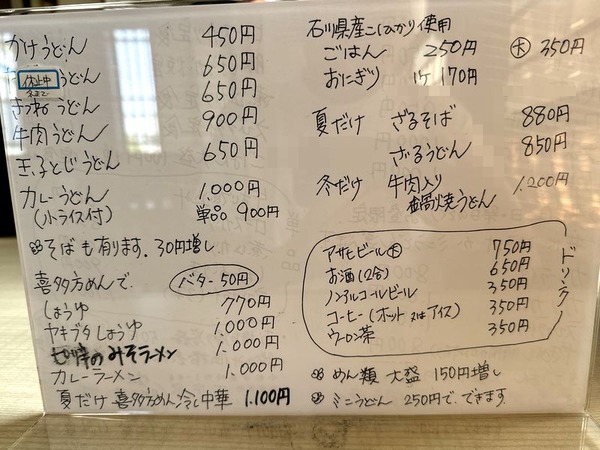 かけうどん 450円
休止中 うどん 650円
きつねうどん 650円
牛肉うどん 900円
玉子とじうどん 650円
カレーうどん 1,000円
(小ライス付) 単品 900円
※そばも有ります。30円増し
喜多方めんで バター 50円
しょうゆ 770円
ヤキブタしょうゆ 1,000円
みそラーメン 1,000円
カレーラーメン 1,000円
夏だけ 喜多方めん冷し中華 1,100円
石川県産こしひかり使用
ごはん 250円 大 350円
おにぎり 1ケ 170円
夏だけ ざるそば 880円
ざるうどん 850円
冬だけ 牛肉入り 1,200円
鍋焼うどん
ドリンク
アサヒビール 大 750円
お酒(2合) 650円
ノンアルコールビール 350円
コーヒー(ホット又はアイス) 350円
ウーロン茶 350円
※めん類 大盛 150円増し
※ミニうどん 250円で、できます